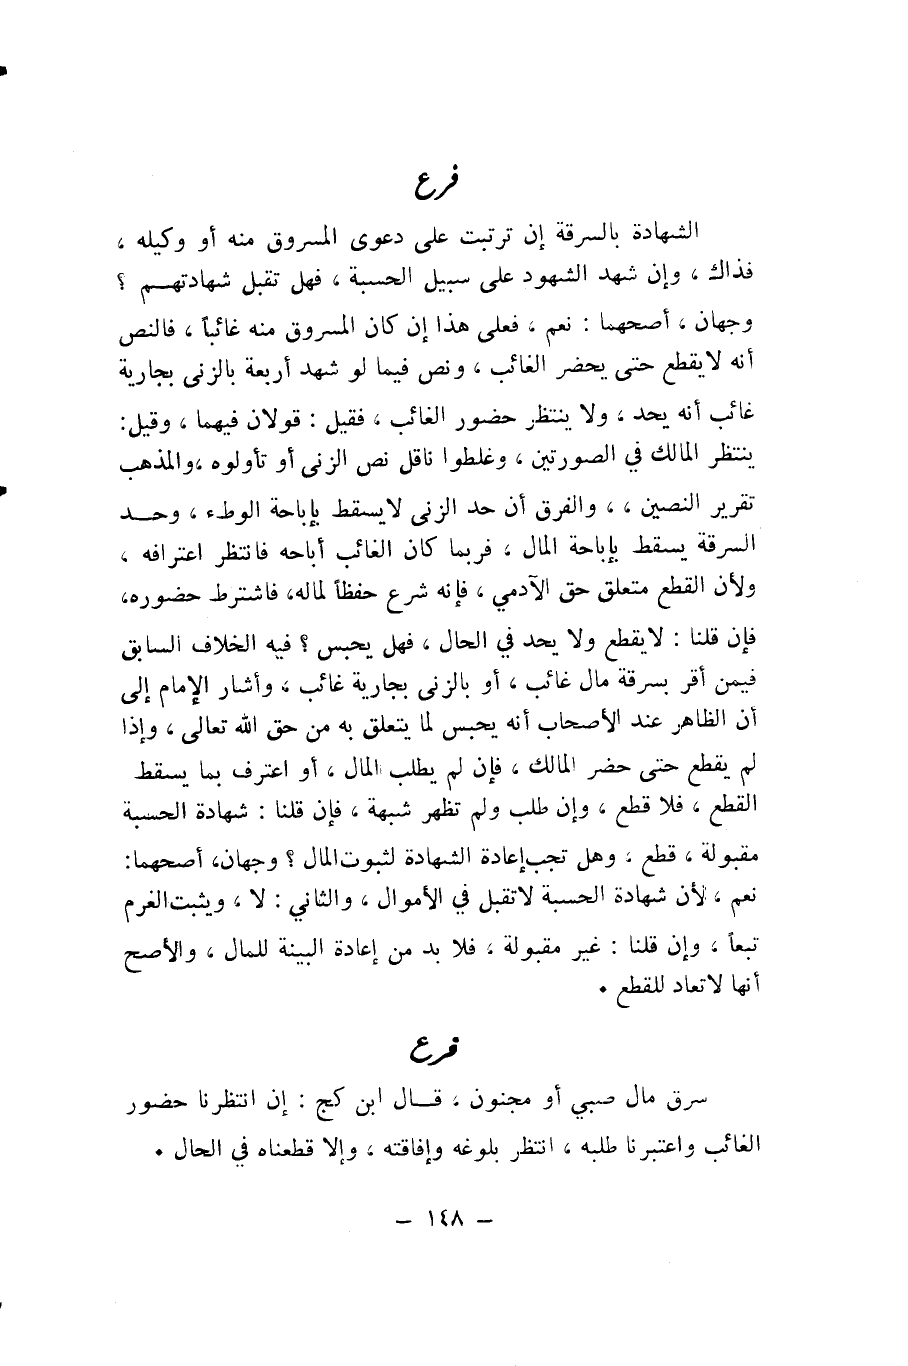 فرع
الشهادة بالسرقة إن ترتبت على دعوى المسروق منه أو وكيله ،
فذاك ، وإن شهد الشهود على سبيل الحسبة ، فهل تقبل شهادتهـم ؟
وجهان ، أصحهما : نعم ، فعلى هذا إن كان المسروق منه غائباً ، فالنص
أنه لايقطع حتى يحضر الغائب ، ونص فيما لو شهد أربعة بالزنى بجارية
غائب أنه يحد ، ولا ينتظر حضور الغائب ، فقيل : قولان فيهما ، وقيل:
ينتظر المالك في الصورتين ، وغلطوا ناقل نص الزنى أو تأولوه ،والمذهب
تقرير النصين ، ، والفرق أن حد الزنى لايسقط بإباحة الوطء ، وحـــد
السرقة يسقط بإباحة المال ، فربما كان الغائب أباحه فانتظر اعترافه ،
ولأن القطع متعلق حق الآدمي ، فإنه شرع حفظاً لماله، فاشترط حضوره،
فإن قلنا : لايقطع ولا يحد في الحال ، فهل يحبس ؟ فيه الخلاف السابق
فيمن أقر بسرقة مال غائب ، أو بالزنى بجارية غائب ، وأشار الإمام إلى
أن الظاهر عند الأصحاب أنه يحبس لما يتعلق به من حق الله تعالى ، وإذا
لم يقطع حتى حضر المالك ، فإن لم يطلب المال ، أو اعترف بما يسقط
القطع ، فلا قطع ، وإن طلب ولم تظهر شبهة ، فإن قلنا : شهادة الحسبة
مقبولة ، قطع ، وهل تجب إعادة الشهادة لثبوت المال ؟ وجهان، أصحهما:
نعم ، لأن شهادة الحسبة لاتقبل في الأموال ، والثاني : لا ، ويثبت الغرم
تبعاً ، وإن قلنا : غير مقبولة ، فلا بد من إعادة البينة للمال ، والأصح
أنها لاتعاد للقطع .
فرع
سرق مال صبي أو مجنون ، قــال ابن كج : إن انتظرنا حضور
الغائب واعتبرنا طلبه ، انتظر بلوغه وإفاقته ، وإلا قطعناه في الحال .
– ١٤٨ –